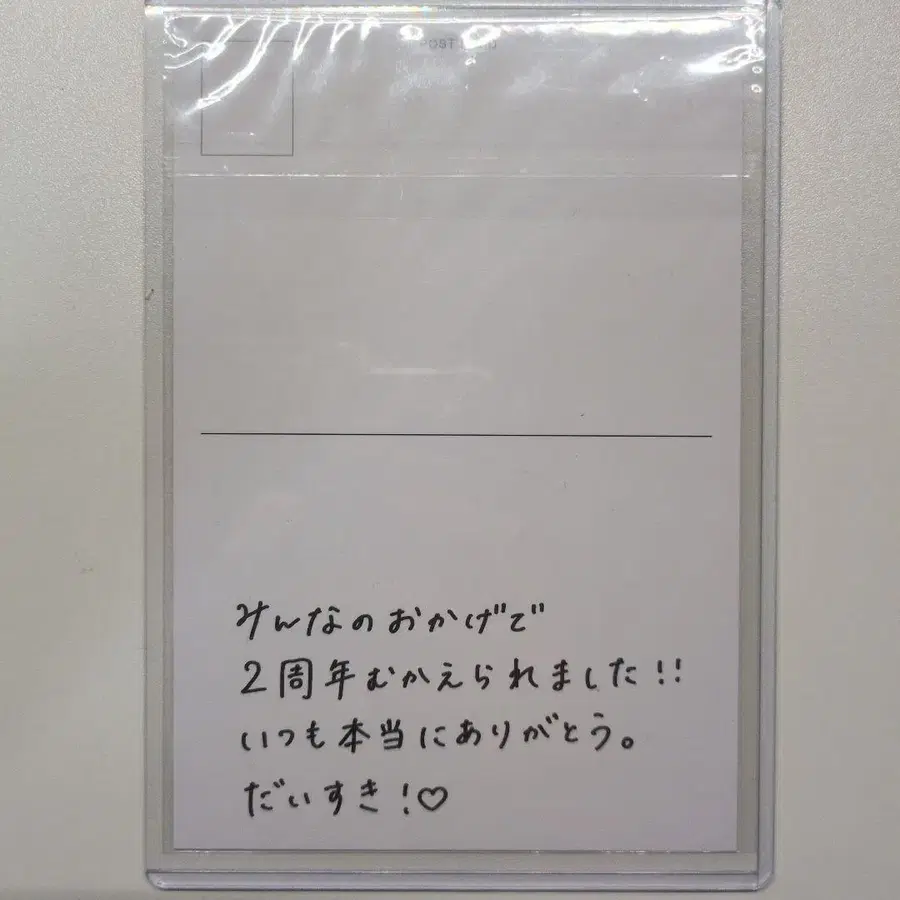 みんなのおかげで
2周年むかえられました!!
いつも本当にありがとう。
だいすき!♡